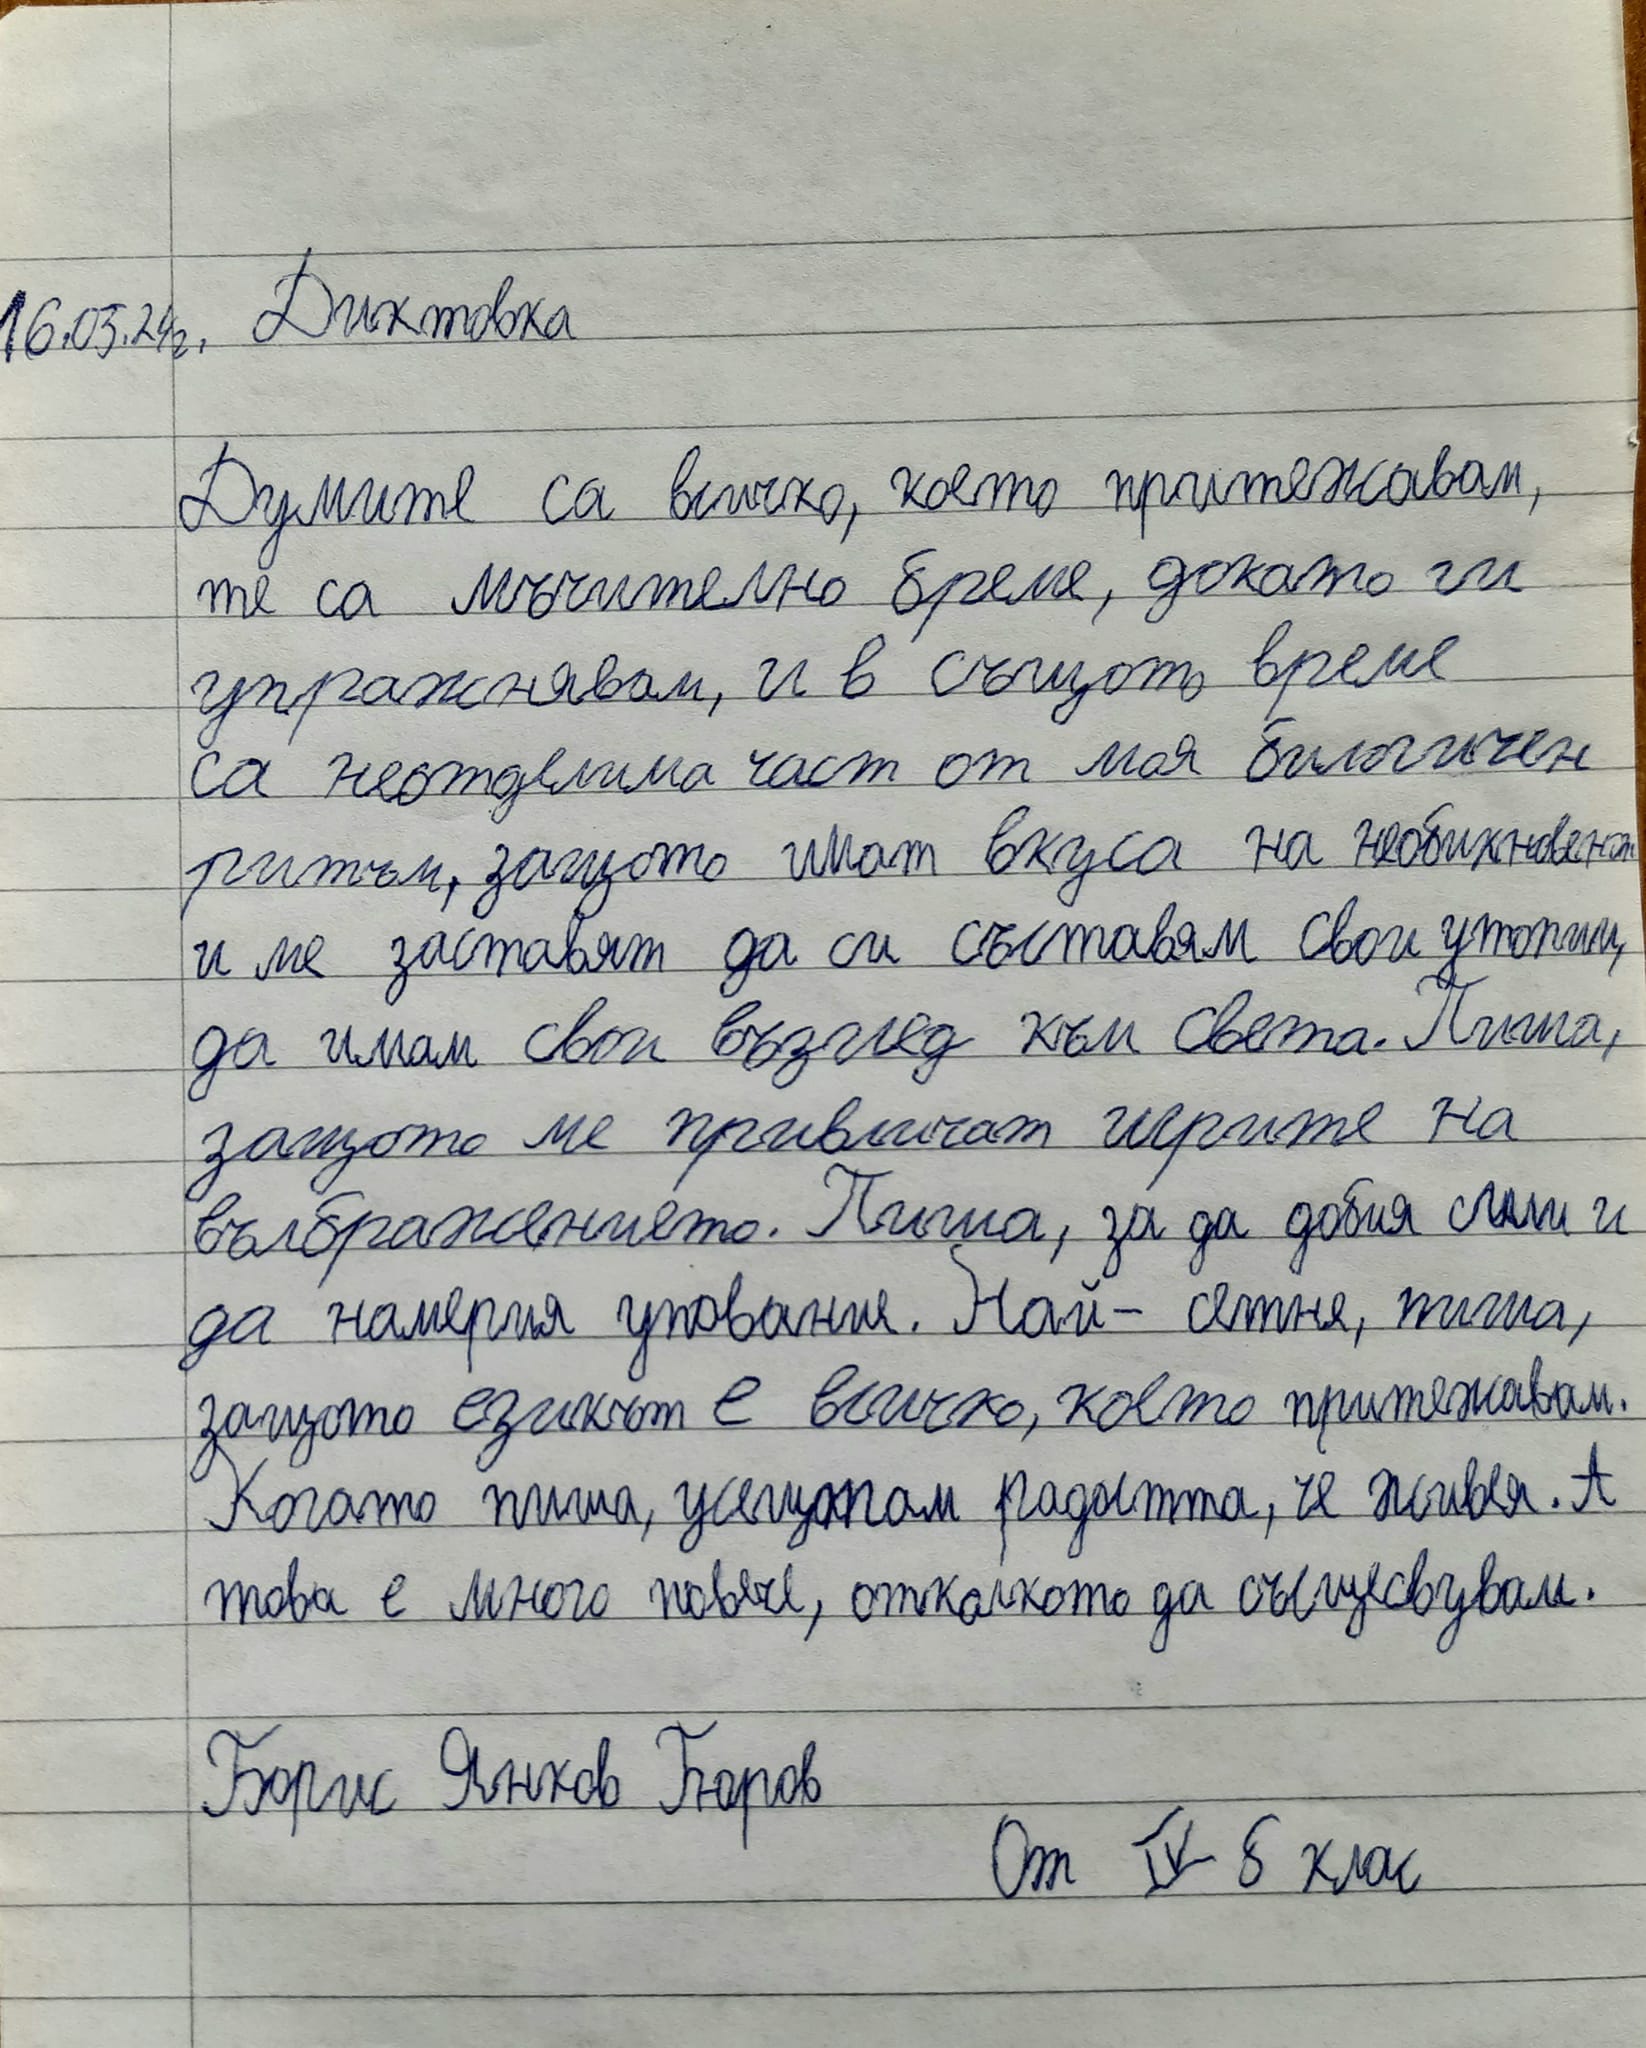 16.03.24г. Диктовка
Думите са всичко, което притежавам,
те са мъчително бреме, докато ги
упражнявам, и в същото време
са неотделима част от моя билогичен
ритъм, защото имат вкуса на необикновеното
и ме заставят да си съставям свои утопии,
да имам свои възглед към света. Пиша,
защото ме привличат игрите на
вълбражението. Пиша, за да добия сили и
да намеря упование. Най- сетне, пиша,
защото езикът е всичко, което притежавам.
Когато пиша, усещопам радостта, че живея. А
това е много повече, отколкото да същесвувам.
Борис Янков Боров
От IV б клас